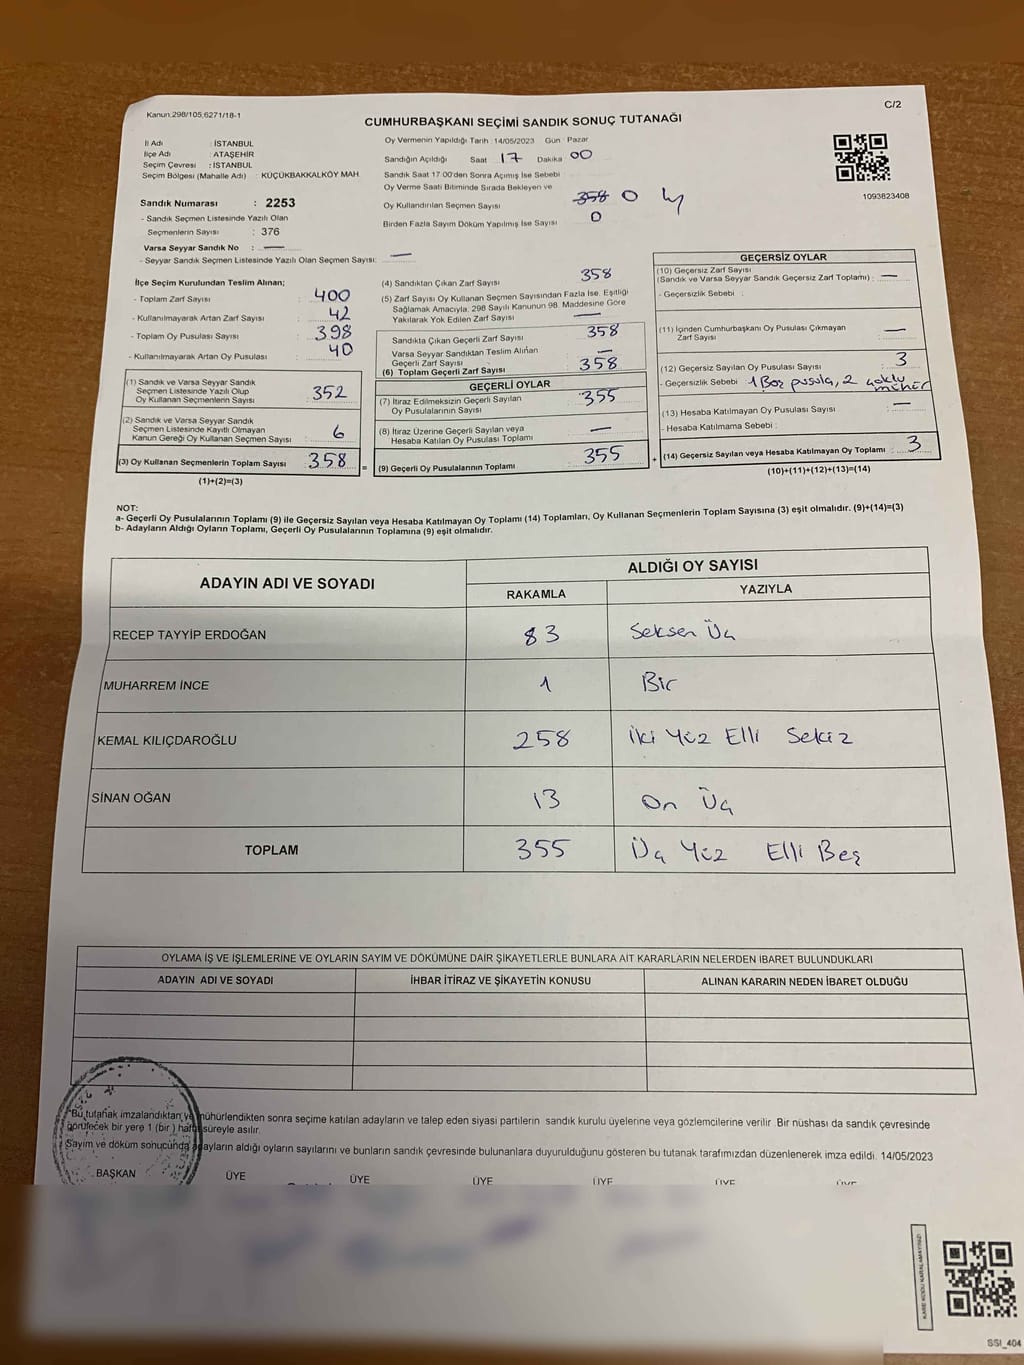 Kanun:298/105,6271/18-1
C/2
CUMHURBAŞKANI SEÇİMİ SANDIK SONUÇ TUTANAĞI
İl Adı : İSTANBUL
İlçe Adı : ATAŞEHİR
Seçim Çevresi : İSTANBUL
Seçim Bölgesi (Mahalle Adı) : KÜÇÜKBAKKALKÖY MAH.
Sandık Numarası : 2253
- Sandık Seçmen Listesinde Yazılı Olan
Seçmenlerin Sayısı : 376
Varsa Seyyar Sandık No : —
- Seyyar Sandık Seçmen Listesinde Yazılı Olan Seçmen Sayısı: —
Oy Vermenin Yapıldığı Tarih : 14/05/2023 Gün : Pazar
Sandığın Açıldığı Saat 17 Dakika 00
Sandık Saat 17:00'den Sonra Açımış İse Sebebi
Oy Verme Saati Bitiminde Sırada Bekleyen ve
Oy Kullandırılan Seçmen Sayısı 358 0
Birden Fazla Sayım Döküm Yapılmış İse Sayısı 0
1093823408
İlçe Seçim Kurulundan Teslim Alınan;
- Toplam Zarf Sayısı : 400
- Kullanılmayarak Artan Zarf Sayısı : 42
- Toplam Oy Pusulası Sayısı : 398
- Kullanılmayarak Artan Oy Pusulası : 40
(1) Sandık ve Varsa Seyyar Sandık
Seçmen Listesinde Yazılı Olup
Oy Kullanan Seçmenlerin Sayısı : 352
(2) Sandık ve Varsa Seyyar Sandık
Seçmen Listesinde Kayıtlı Olmayan
Kanun Gereği Oy Kullanan Seçmen Sayısı : 6
(3) Oy Kullanan Seçmenlerin Toplam Sayısı : 358 =
(1)+(2)=(3)
(4) Sandıktan Çıkan Zarf Sayısı 358
(5) Zarf Sayısı Oy Kullanan Seçmen Sayısından Fazla İse, Eşitliği
Sağlamak Amacıyla, 298 Sayılı Kanunun 98. Maddesine Göre
Yakılarak Yok Edilen Zarf Sayısı —
Sandıkta Çıkan Geçerli Zarf Sayısı 358
Varsa Seyyar Sandıktan Teslim Alınan
Geçerli Zarf Sayısı —
(6) Toplam Geçerli Zarf Sayısı 358
GEÇERLİ OYLAR
(7) İtiraz Edilmeksizin Geçerli Sayılan
Oy Pusulalarının Sayısı 355
(8) İtiraz Üzerine Geçerli Sayılan veya
Hesaba Katılan Oy Pusulası Toplamı —
(9) Geçerli Oy Pusulalarının Toplamı 355 +
GEÇERSİZ OYLAR
(10) Geçersiz Zarf Sayısı
(Sandık ve Varsa Seyyar Sandık Geçersiz Zarf Toplamı) : —
- Geçersizlik Sebebi :
(11) İçinden Cumhurbaşkanı Oy Pusulası Çıkmayan
Zarf Sayısı —
(12) Geçersiz Sayılan Oy Pusulası Sayısı 3
- Geçersizlik Sebebi : 1 Boş pusula, 2 çoklu mühür
(13) Hesaba Katılmayan Oy Pusulası Sayısı —
- Hesaba Katılmama Sebebi :
(14) Geçersiz Sayılan veya Hesaba Katılmayan Oy Toplamı : 3
(10)+(11)+(12)+(13)=(14)
NOT:
a- Geçerli Oy Pusulalarının Toplamı (9) ile Geçersiz Sayılan veya Hesaba Katılmayan Oy Toplamı (14) Toplamları, Oy Kullanan Seçmenlerin Toplam Sayısına (3) eşit olmalıdır. (9)+(14)=(3)
b- Adayların Aldığı Oyların Toplamı, Geçerli Oy Pusulalarının Toplamına (9) eşit olmalıdır.
ADAYIN ADI VE SOYADI
ALDIĞI OY SAYISI
RAKAMLA YAZIYLA
RECEP TAYYİP ERDOĞAN 83 Seksen Üç
MUHARREM İNCE 1 Bir
KEMAL KILIÇDAROĞLU 258 İki Yüz Elli Sekiz
SİNAN OĞAN 13 On Üç
TOPLAM 355 Üç Yüz Elli Beş
OYLAMA İŞ VE İŞLEMLERİNE VE OYLARIN SAYIM VE DÖKÜMÜNE DAİR ŞİKAYETLERLE BUNLARA AİT KARARLARIN NELERDEN İBARET BULUNDUKLARI
ADAYIN ADI VE SOYADI İHBAR İTİRAZ VE ŞİKAYETİN KONUSU ALINAN KARARIN NEDEN İBARET OLDUĞU
Bu tutanak imzalandıktan ve mühürlendikten sonra seçime katılan adayların ve talep eden siyasi partilerin sandık kurulu üyelerine veya gözlemcilerine verilir. Bir nüshası da sandık çevresinde
görülecek bir yere 1 (bir ) hafta süreyle asılır.
Sayım ve döküm sonucunda adayların aldığı oyların sayılarını ve bunların sandık çevresinde bulunanlara duyurulduğunu gösteren bu tutanak tarafımızdan düzenlenerek imza edildi. 14/05/2023
BAŞKAN ÜYE ÜYE ÜYE ÜYE ÜYE ÜYE
KARE KODU KARALAMAYINIZ!
SSI_404